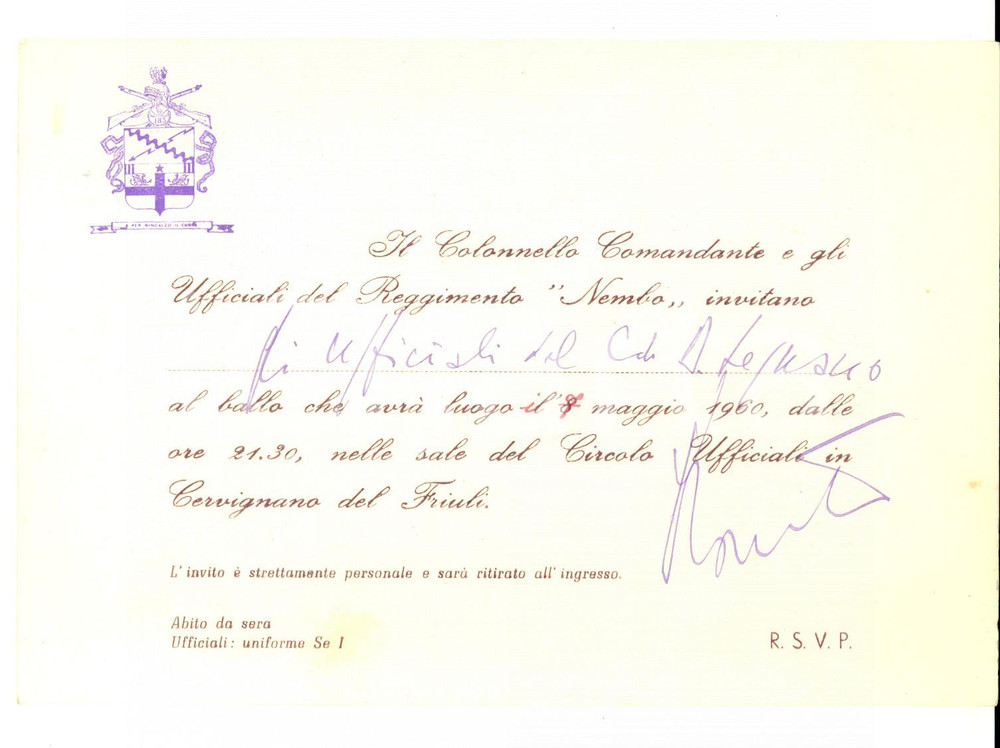 183
PER RINCALZO IL CUORE
Il Colonnello Comandante e gli
Ufficiali del Reggimento "Nembo„ invitano
gli Ufficiali del Cdo B.
al ballo che avrà luogo il maggio 1960, dalle
ore 21.30, nelle sale del Circolo Ufficiali in
Cervignano del Friuli.
L'invito è strettamente personale e sarà ritirato all'ingresso.
Abito da sera
Ufficiali: uniforme Se I
R. S. V. P.